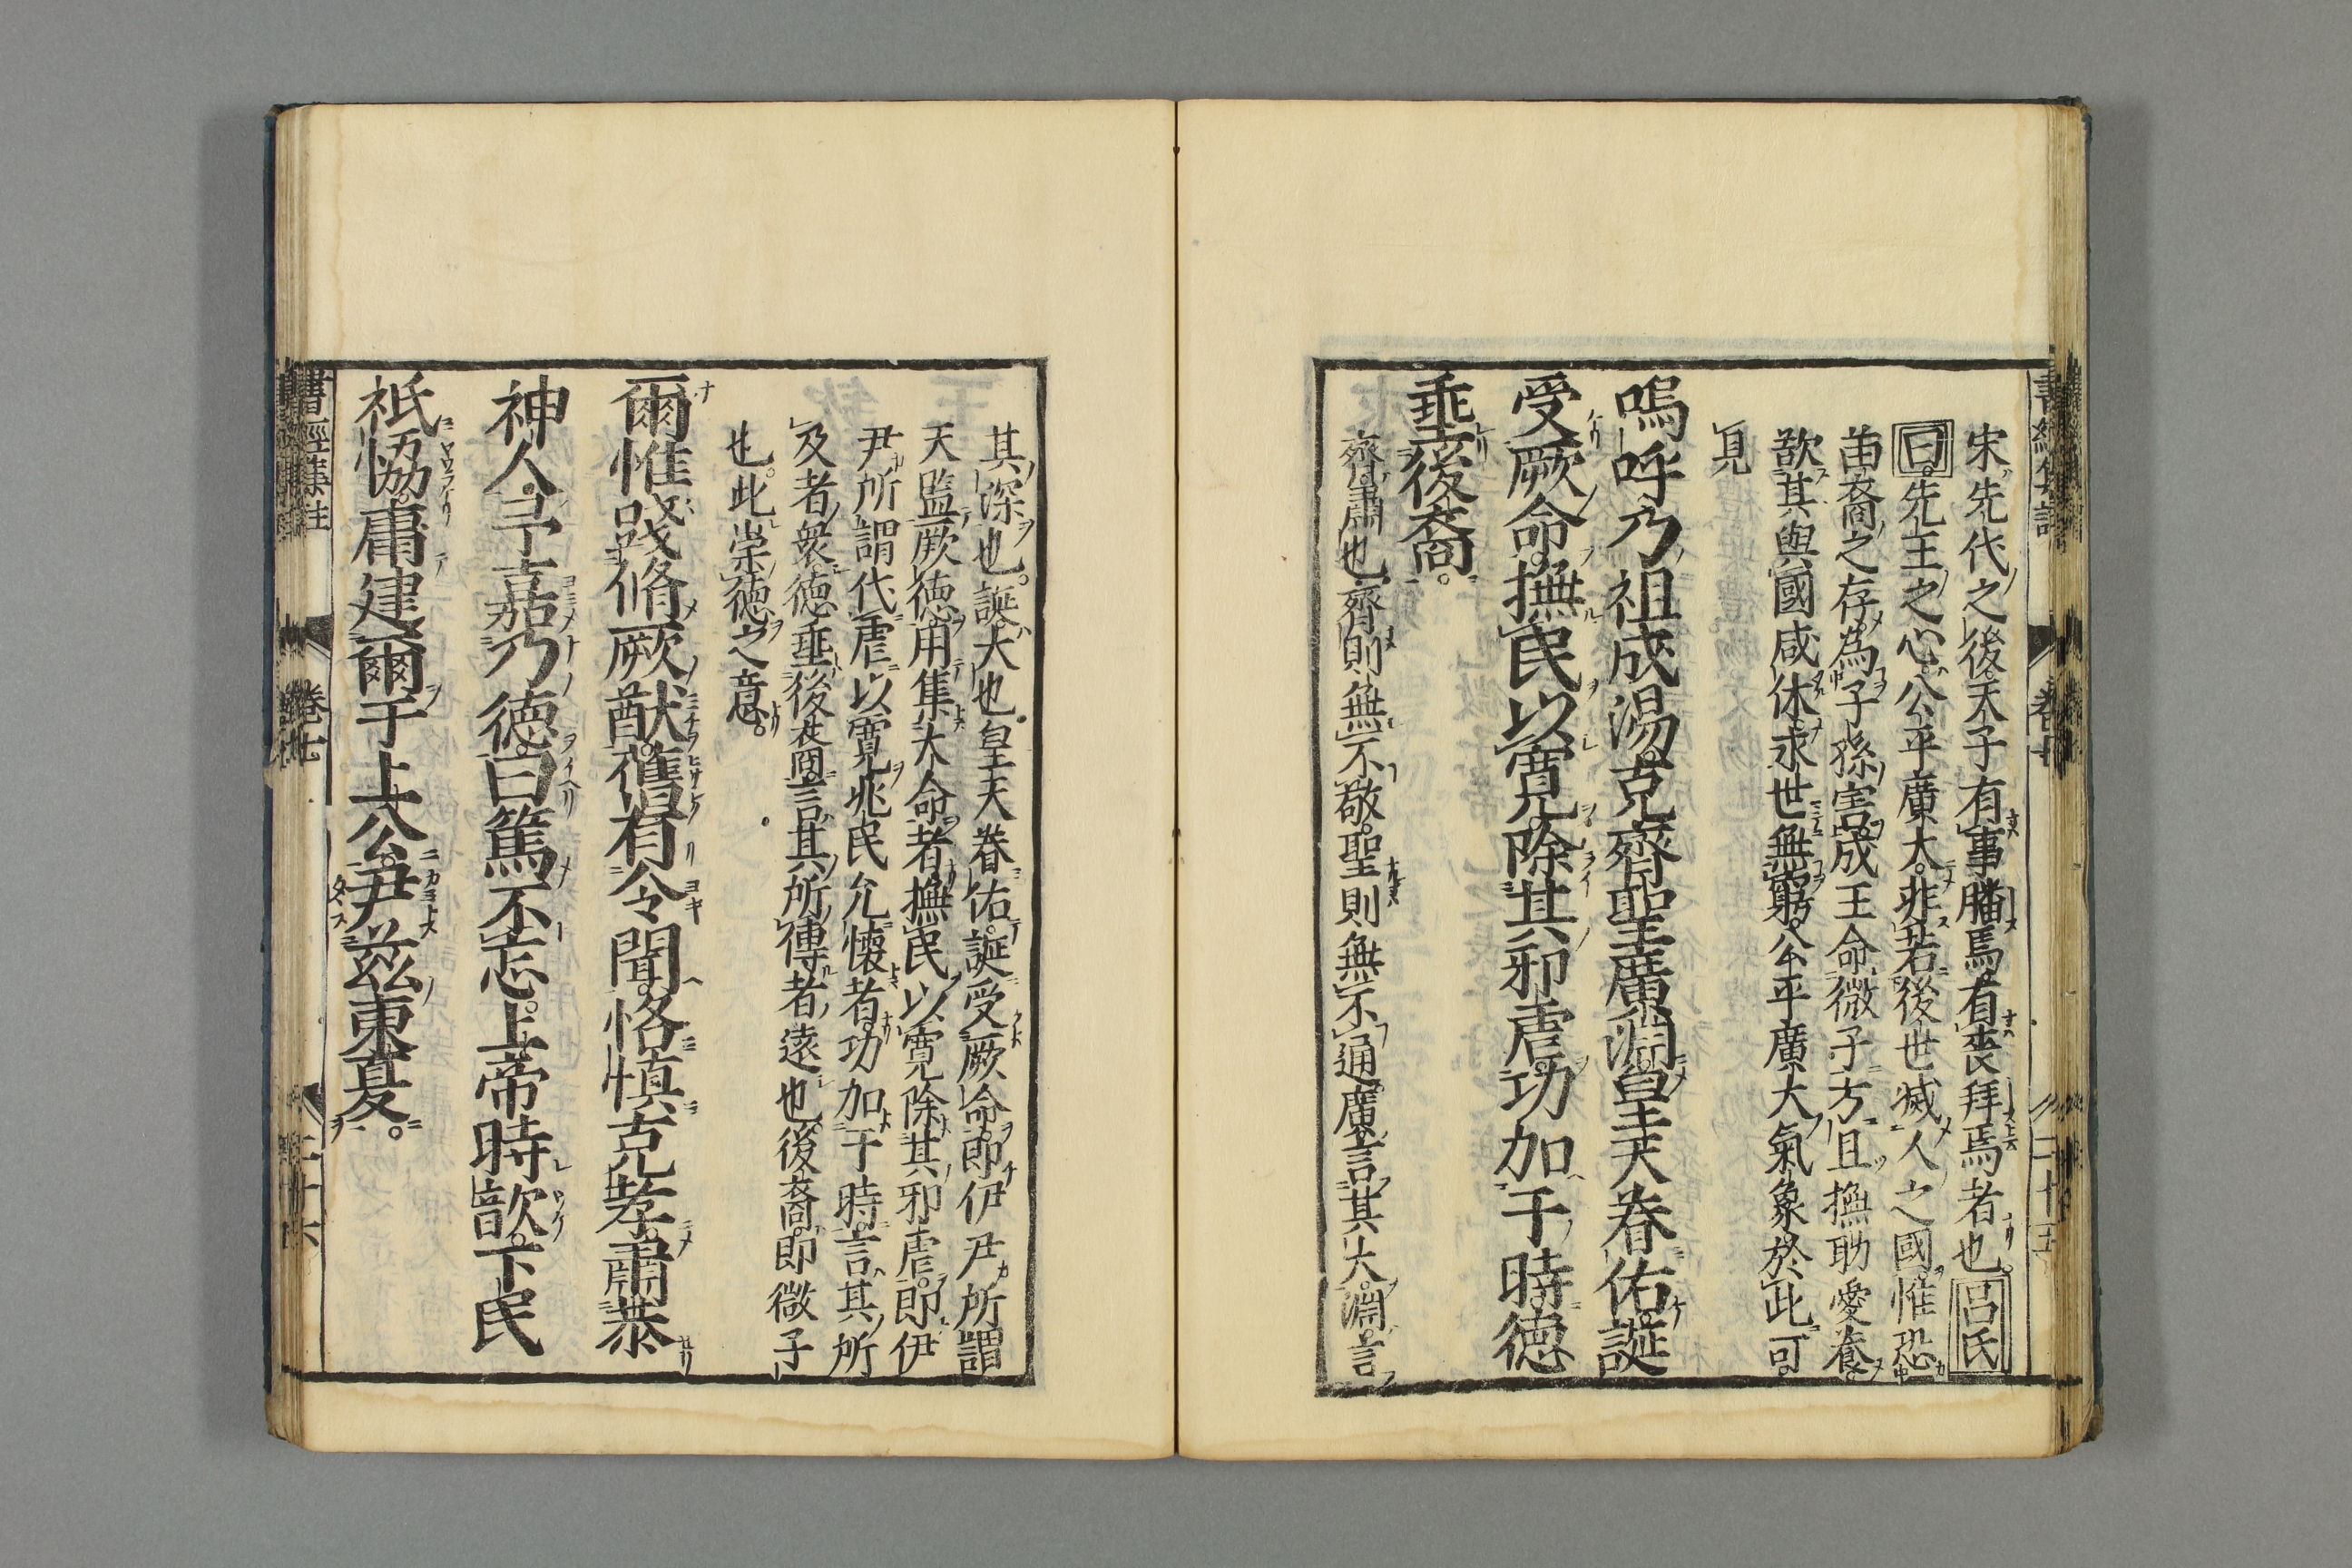 宋先代之後天子有事膰焉有喪拜焉者也呂氏
曰先王之心公平廣大非若後世滅人之國惟恐
苗裔之存為子孫害成王命微子方且撫助愛養
歆其與國咸休永世無窮公平廣大氣象於此可
見
嗚呼乃祖成湯克齊聖廣淵皇天眷佑誕
受厥命撫民以寬除其邪虐功加于時德
垂後裔
齊肅也齊則無不敬聖則無不通廣言其大淵言
其深也誕大也皇天眷佑誕受厥命即伊尹所謂
天監厥德用集大命者撫民以寬除其邪虐即伊
尹所謂代虐以寬兆民允懷者功加于時言其所
及者衆德垂後裔言其所傳者遠也後裔即微子
也此崇德之意
爾惟踐脩厥猷舊有令聞恪慎克孝肅恭
神人予嘉乃德曰篤不忘上帝時歆下民
祗協庸建爾于上公尹茲東夏
書經集註
卷七
二十六